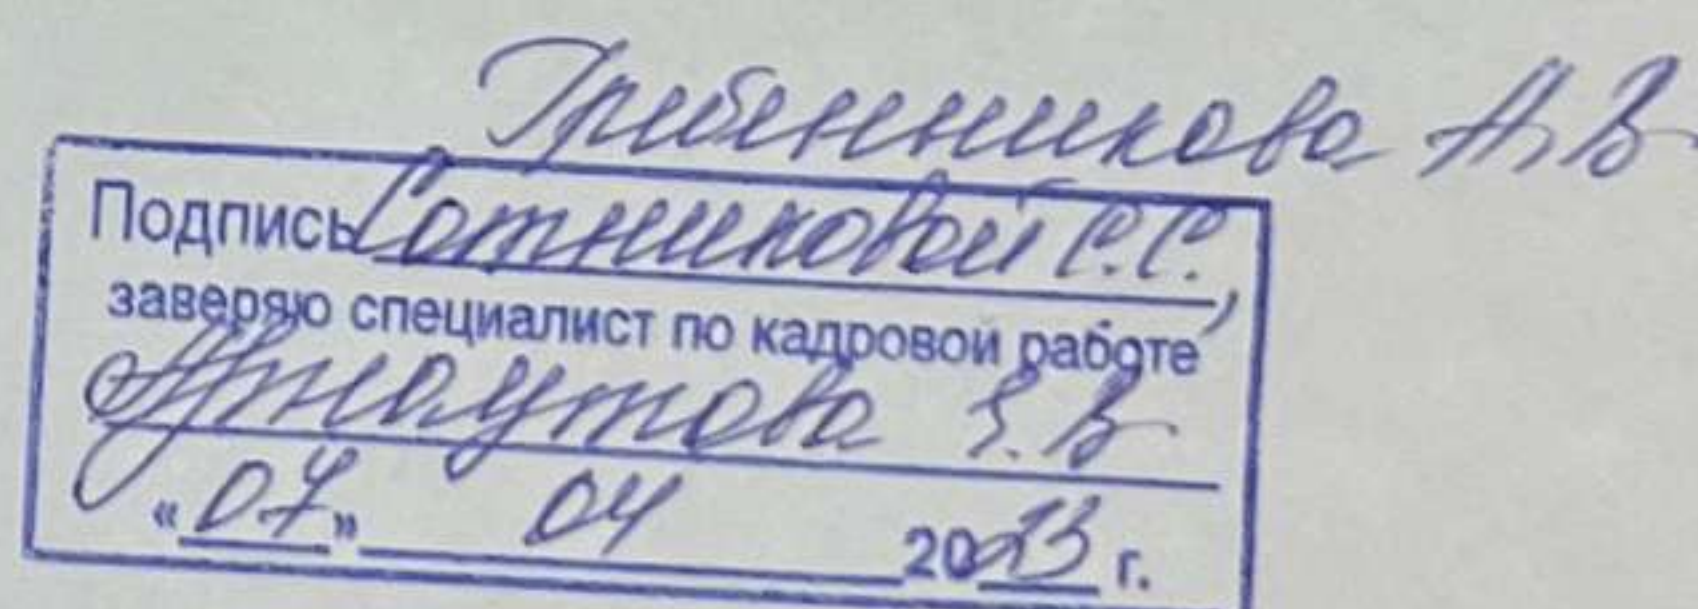 Грибенникова А.В
Подпись Сотниковой С.С.,
заверяю специалист по кадровой работе
Арнаутова Е.В
«07» 04 2023 г.